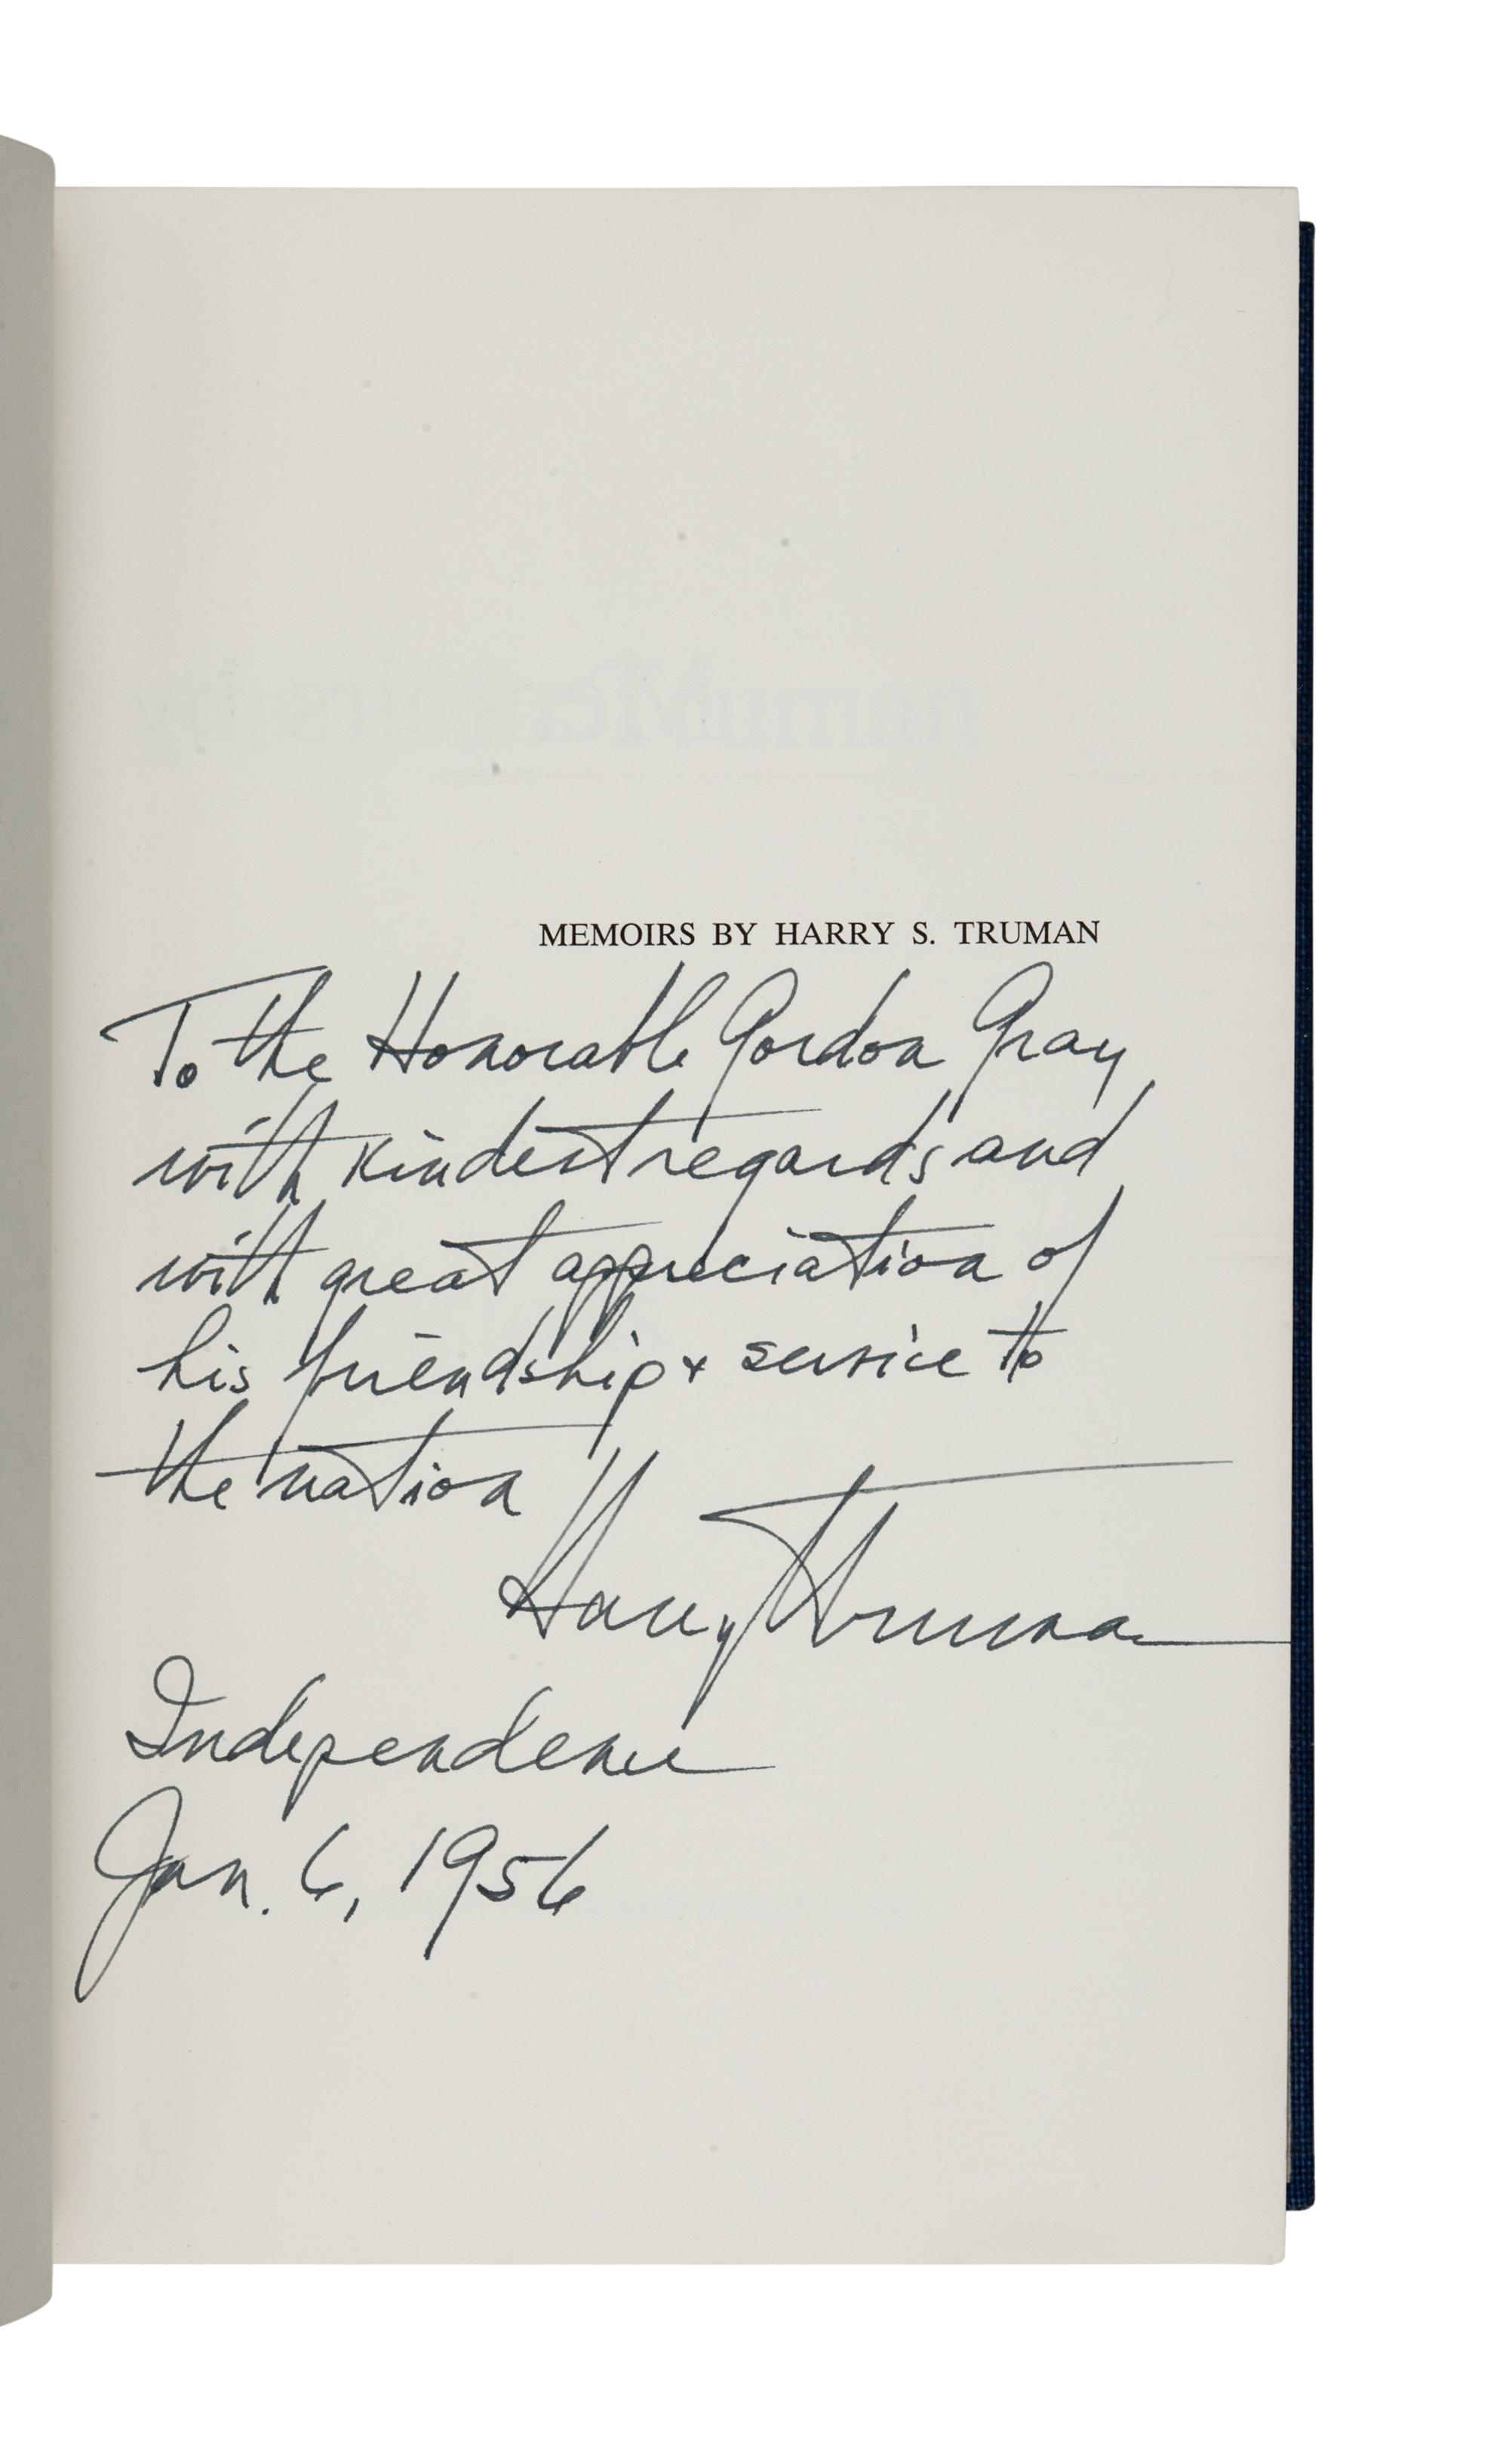 MEMOIRS BY HARRY S. TRUMAN
To the Honorable Gordon Gray,
with kindest regards and
with great appreciation of
his friendship & service to
the nation
Harry S Truman
Independence
Jan. 6, 1956